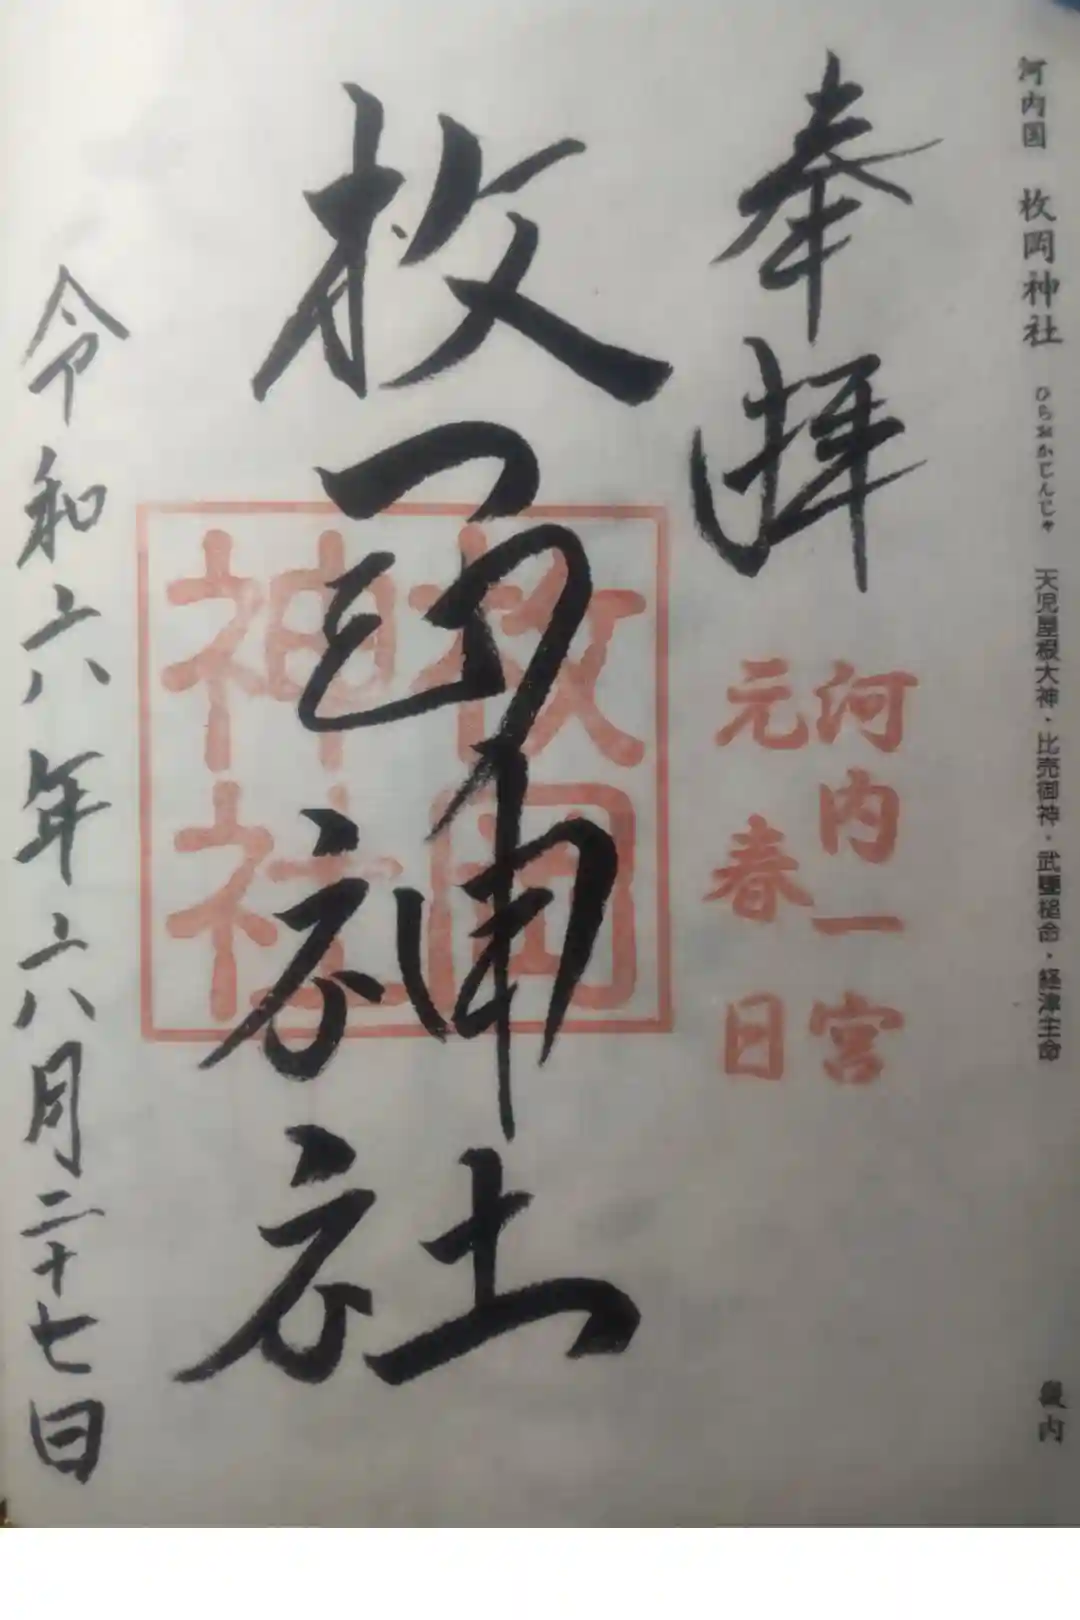 河内国 枚岡神社 ひらおかじんじゃ 天児屋根大神・比売御神・武甕槌命・経津主命 畿内
奉拝
河内一宮
元春日
枚岡神社
枚岡
神社
令和六年六月二十七日